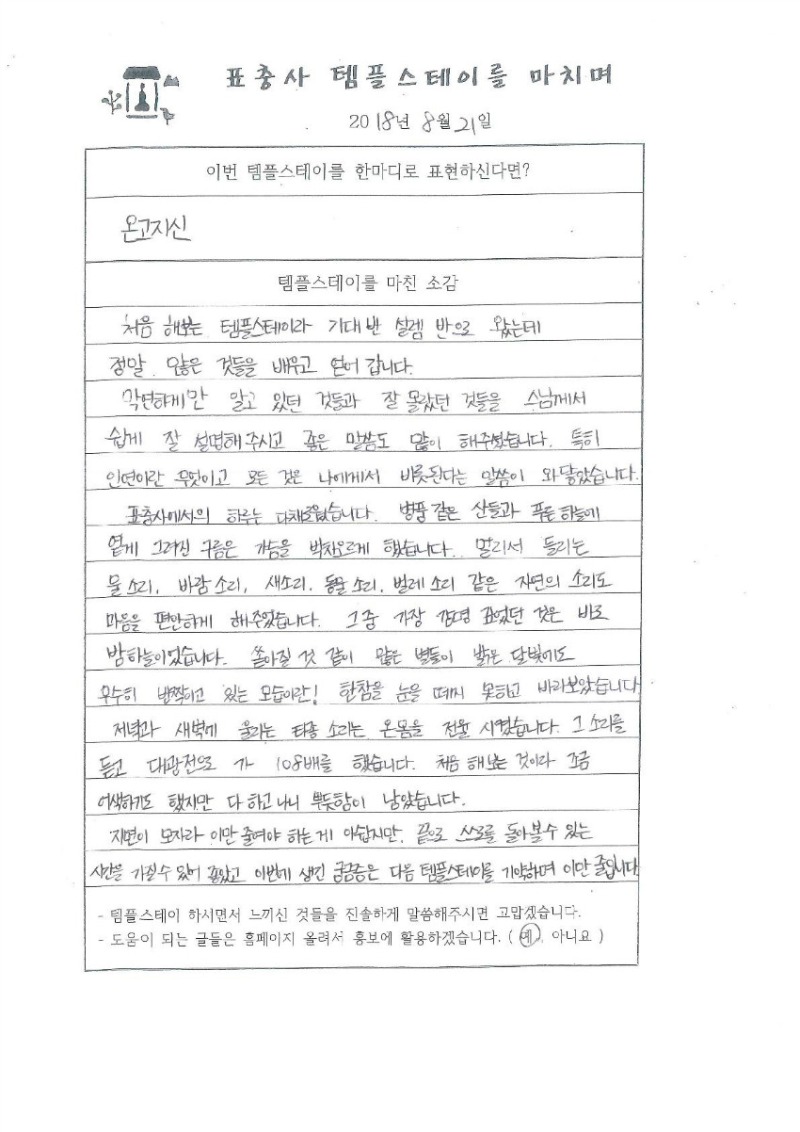 표충사 템플스테이를 마치며
2018년 8월 21일
이번 템플스테이를 한마디로 표현하신다면?
온고지신
템플스테이를 마친 소감
처음 해보는 템플스테이라 기대 반 설렘 반으로 왔는데
정말 많은 것들을 배우고 얻어 갑니다.
막연하게만 알고 있던 것들과 잘 몰랐던 것들을 스님께서
쉽게 잘 설명해 주시고 좋은 말씀도 많이 해주셨습니다. 특히
인연이란 무엇이고 모든 것은 나에게서 비롯된다는 말씀이 와닿았습니다.
표충사에서의 하루는 다채로웠습니다. 병풍 같은 산들과 푸른 하늘에
옅게 그려진 구름은 가슴을 벅차오르게 했습니다. 멀리서 들리는
물 소리, 바람 소리, 새소리, 동물 소리, 벌레 소리 같은 자연의 소리도
마음을 편안하게 해주었습니다. 그중 가장 감명 깊었던 것은 바로
밤하늘이었습니다. 쏟아질 것 같이 많은 별들이 밝은 달빛에도
무수히 반짝이고 있는 모습이란! 한참을 눈을 떼지 못하고 바라보았습니다
저녁과 새벽에 울리는 타종 소리는 온몸을 전율 시켰습니다. 그 소리를
듣고 대광전으로 가 108배를 했습니다. 처음 해보는 것이라 조금
어색하기도 했지만 다 하고 나니 뿌듯함이 남았습니다.
지면이 모자라 이만 줄여야 하는 게 아쉽지만, 끝으로 스스로를 돌아볼 수 있는
시간을 가질 수 있어 좋았고 이번에 생긴 궁금증은 다음 템플스테이를 기약하며 이만 줄입니다
- 템플스테이 하시면서 느끼신 것들을 진솔하게 말씀해주시면 고맙겠습니다.
- 도움이 되는 글들은 홈페이지 올려서 홍보에 활용하겠습니다. ( 예, 아니요 )